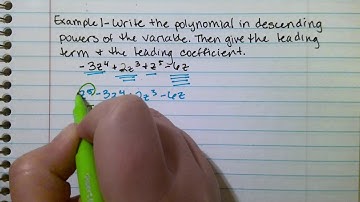 Example 1- Write the polynomial in descending
powers of the variable. Then give the leading
term & the leading coefficient.
-3z⁴+2z³+z⁵-6z
z⁵-3z⁴+2z³-6z